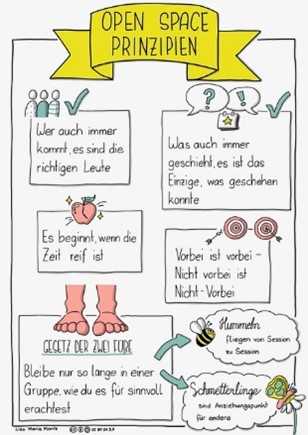 OPEN SPACE
PRINZIPIEN
Wer auch immer
kommt, es sind die
richtigen Leute
? !
Was auch immer
geschieht, es ist das
Einzige, was geschehen
konnte
Es beginnt, wenn die
Zeit reif ist
Vorbei ist vorbei –
Nicht vorbei ist
Nicht-Vorbei
GESETZ DER ZWEI FÜßE
Bleibe nur so lange in einer
Gruppe, wie du es für sinnvoll
erachtest
Hummeln
fliegen von Session
zu Session
Schmetterlinge
sind Anziehungspunkt
für andere